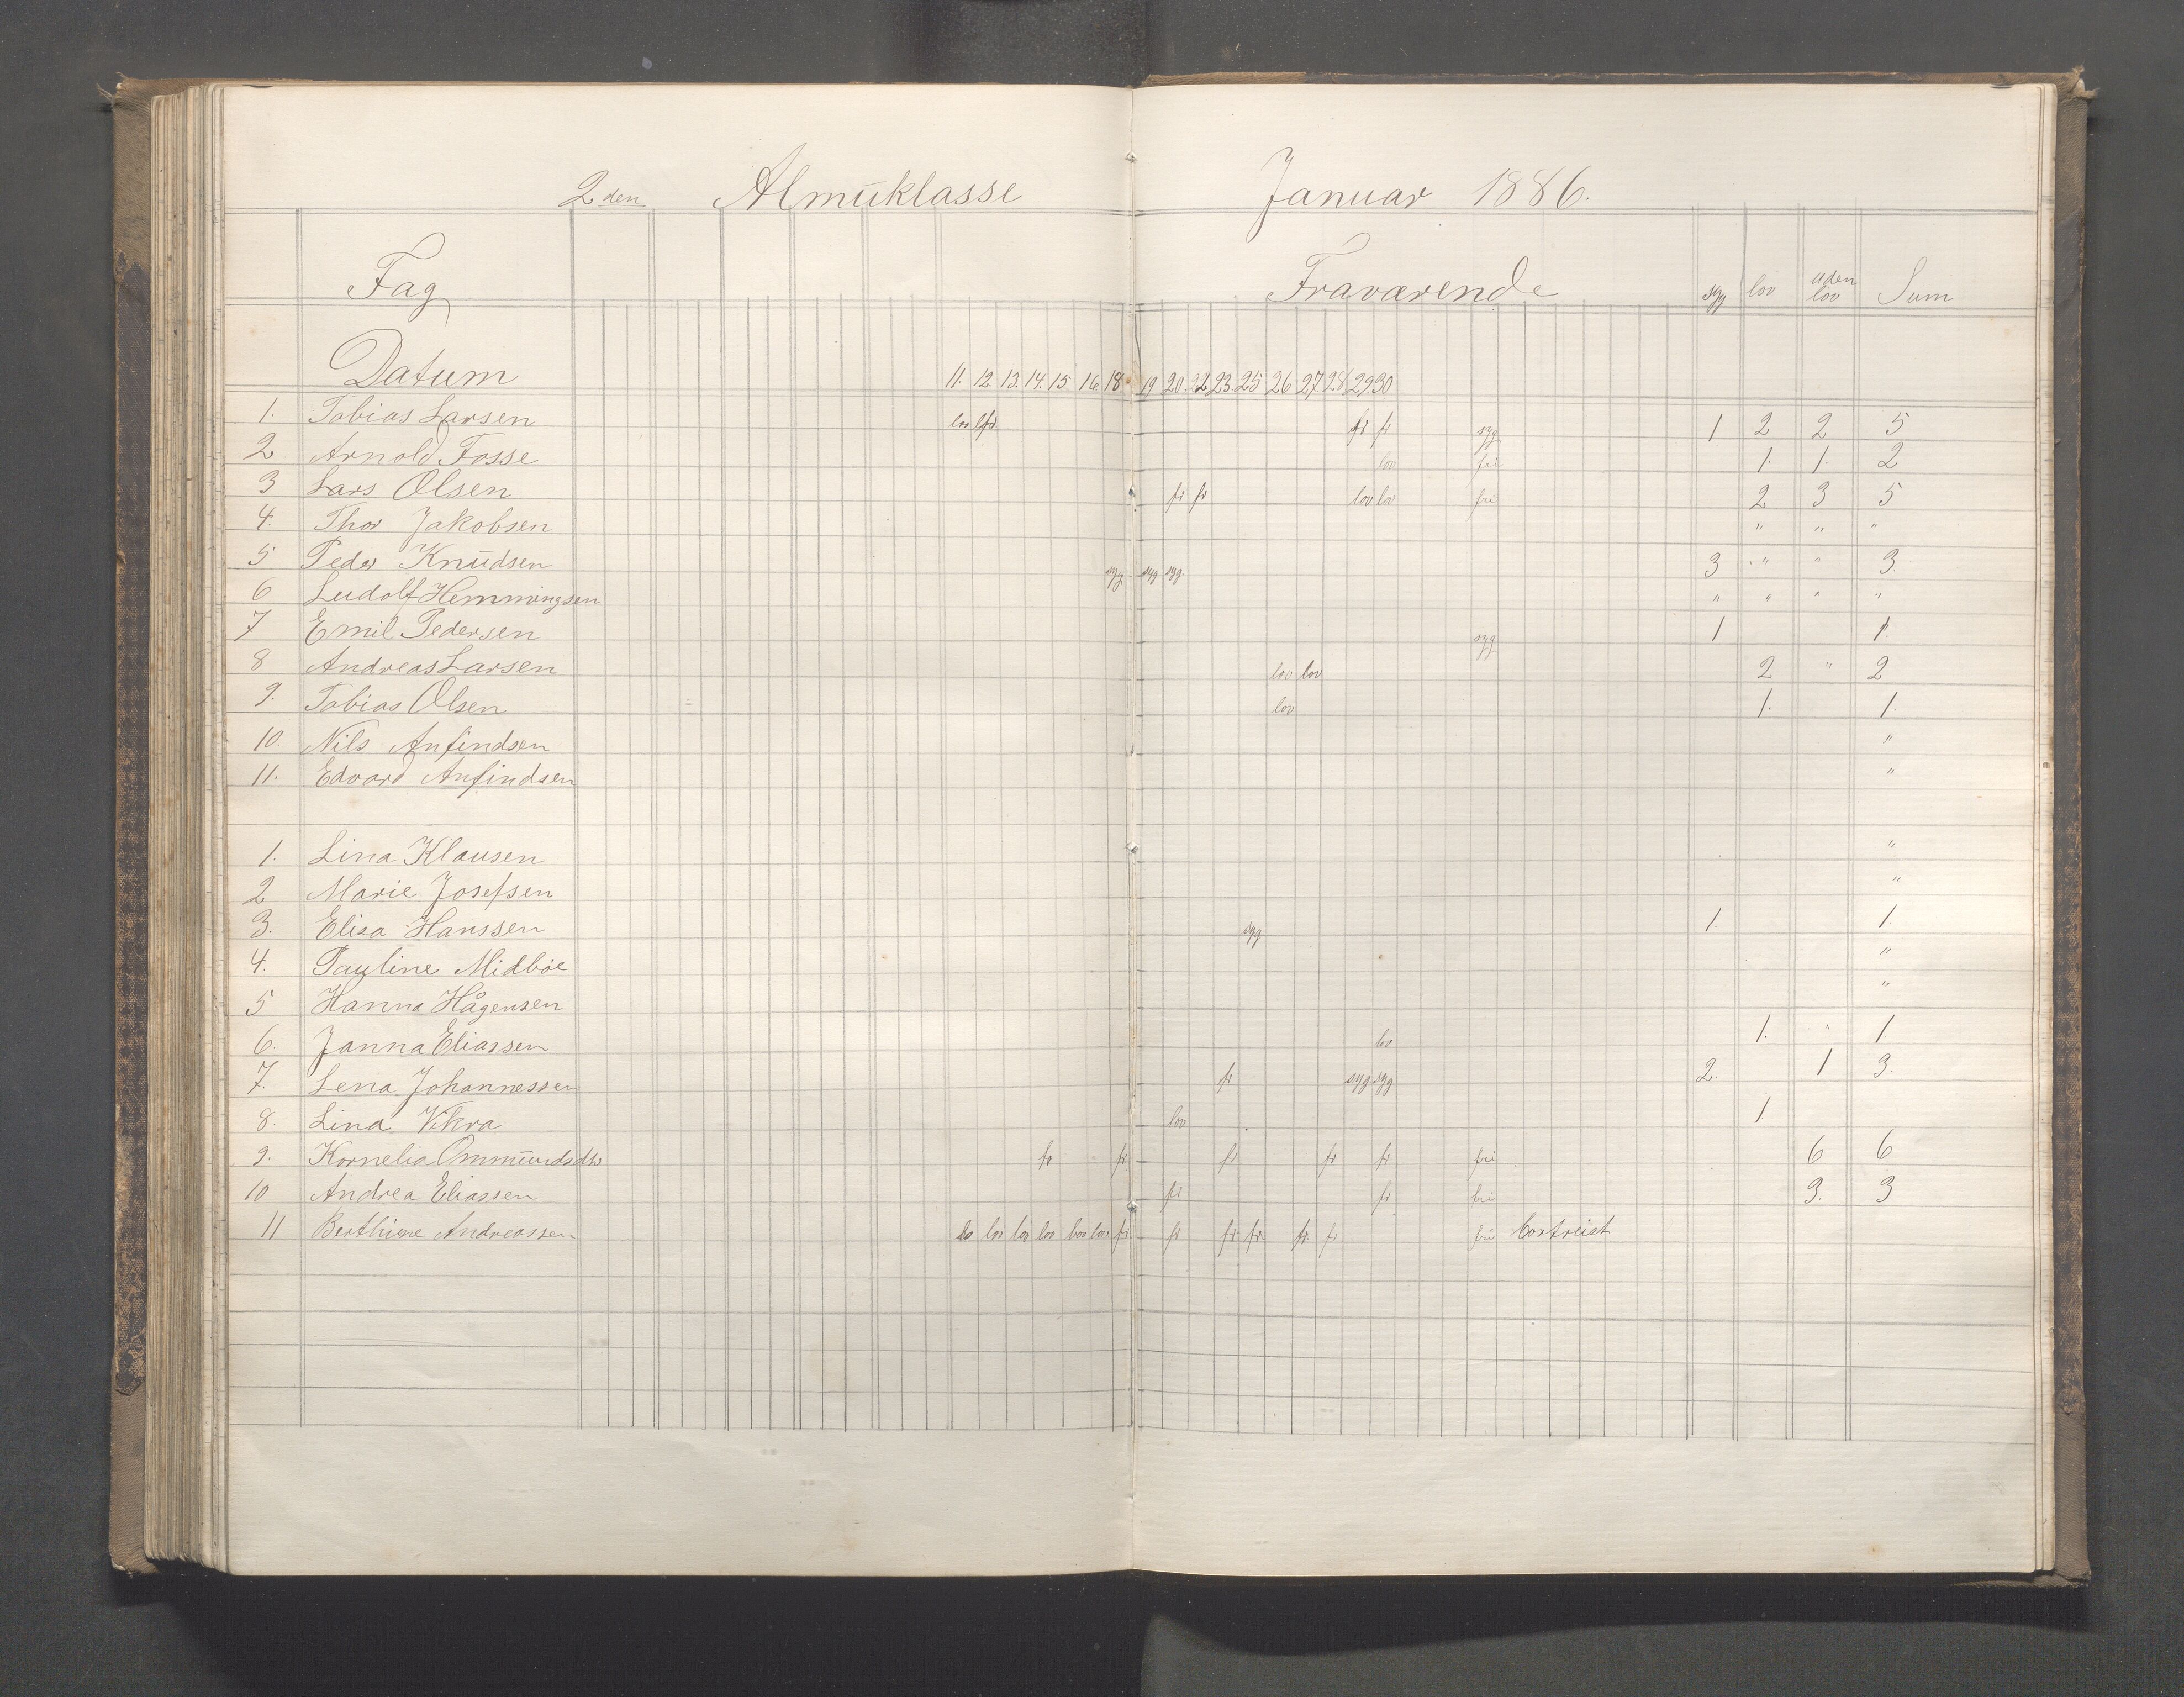 2den Almuklasse Januar 1886.
Fag Fraværende syg lov uden lov Sum
Datum 11. 12. 13. 14. 15 16. 18. 19 20. 22 23. 25 26 27 28 29 30
1. Tobias Larsen lov fr. fr fr syg 1 2 2 5
2 Arnold Fosse lov fri 1. 1. 2
3 Lars Olsen fr fr lov lov fri 2 3 5
4. Thor Jakobsen " " "
5 Peder Knudsen syg syg syg 3 " " 3.
6 Ludolf Hemmingsen " " " "
7 Emil Pedersen syg 1 1.
8 Andreas Larsen lov lov 2 " 2
9. Tobias Olsen lov 1. 1.
10. Nils Anfindsen "
11. Edvard Anfindsen "
1. Lina Klausen "
2 Marie Josefsen "
3. Elisa Hanssen syg 1. 1
4. Pauline Midbøe "
5 Hanna Hågensen "
6. Janna Eliassen lov 1. " 1
7. Lena Johannessen fr syg syg 2. 1 3.
8. Lina Vikra lov 1
9. Kornelia Ommundsdtr fr fr fr fr fr fri 6 6
10 Andrea Eliassen fr fr fri 3. 3
11 Berthine Andreassen lo lov lov lov lov lov fr fr fr fr fr fr fri bortreist